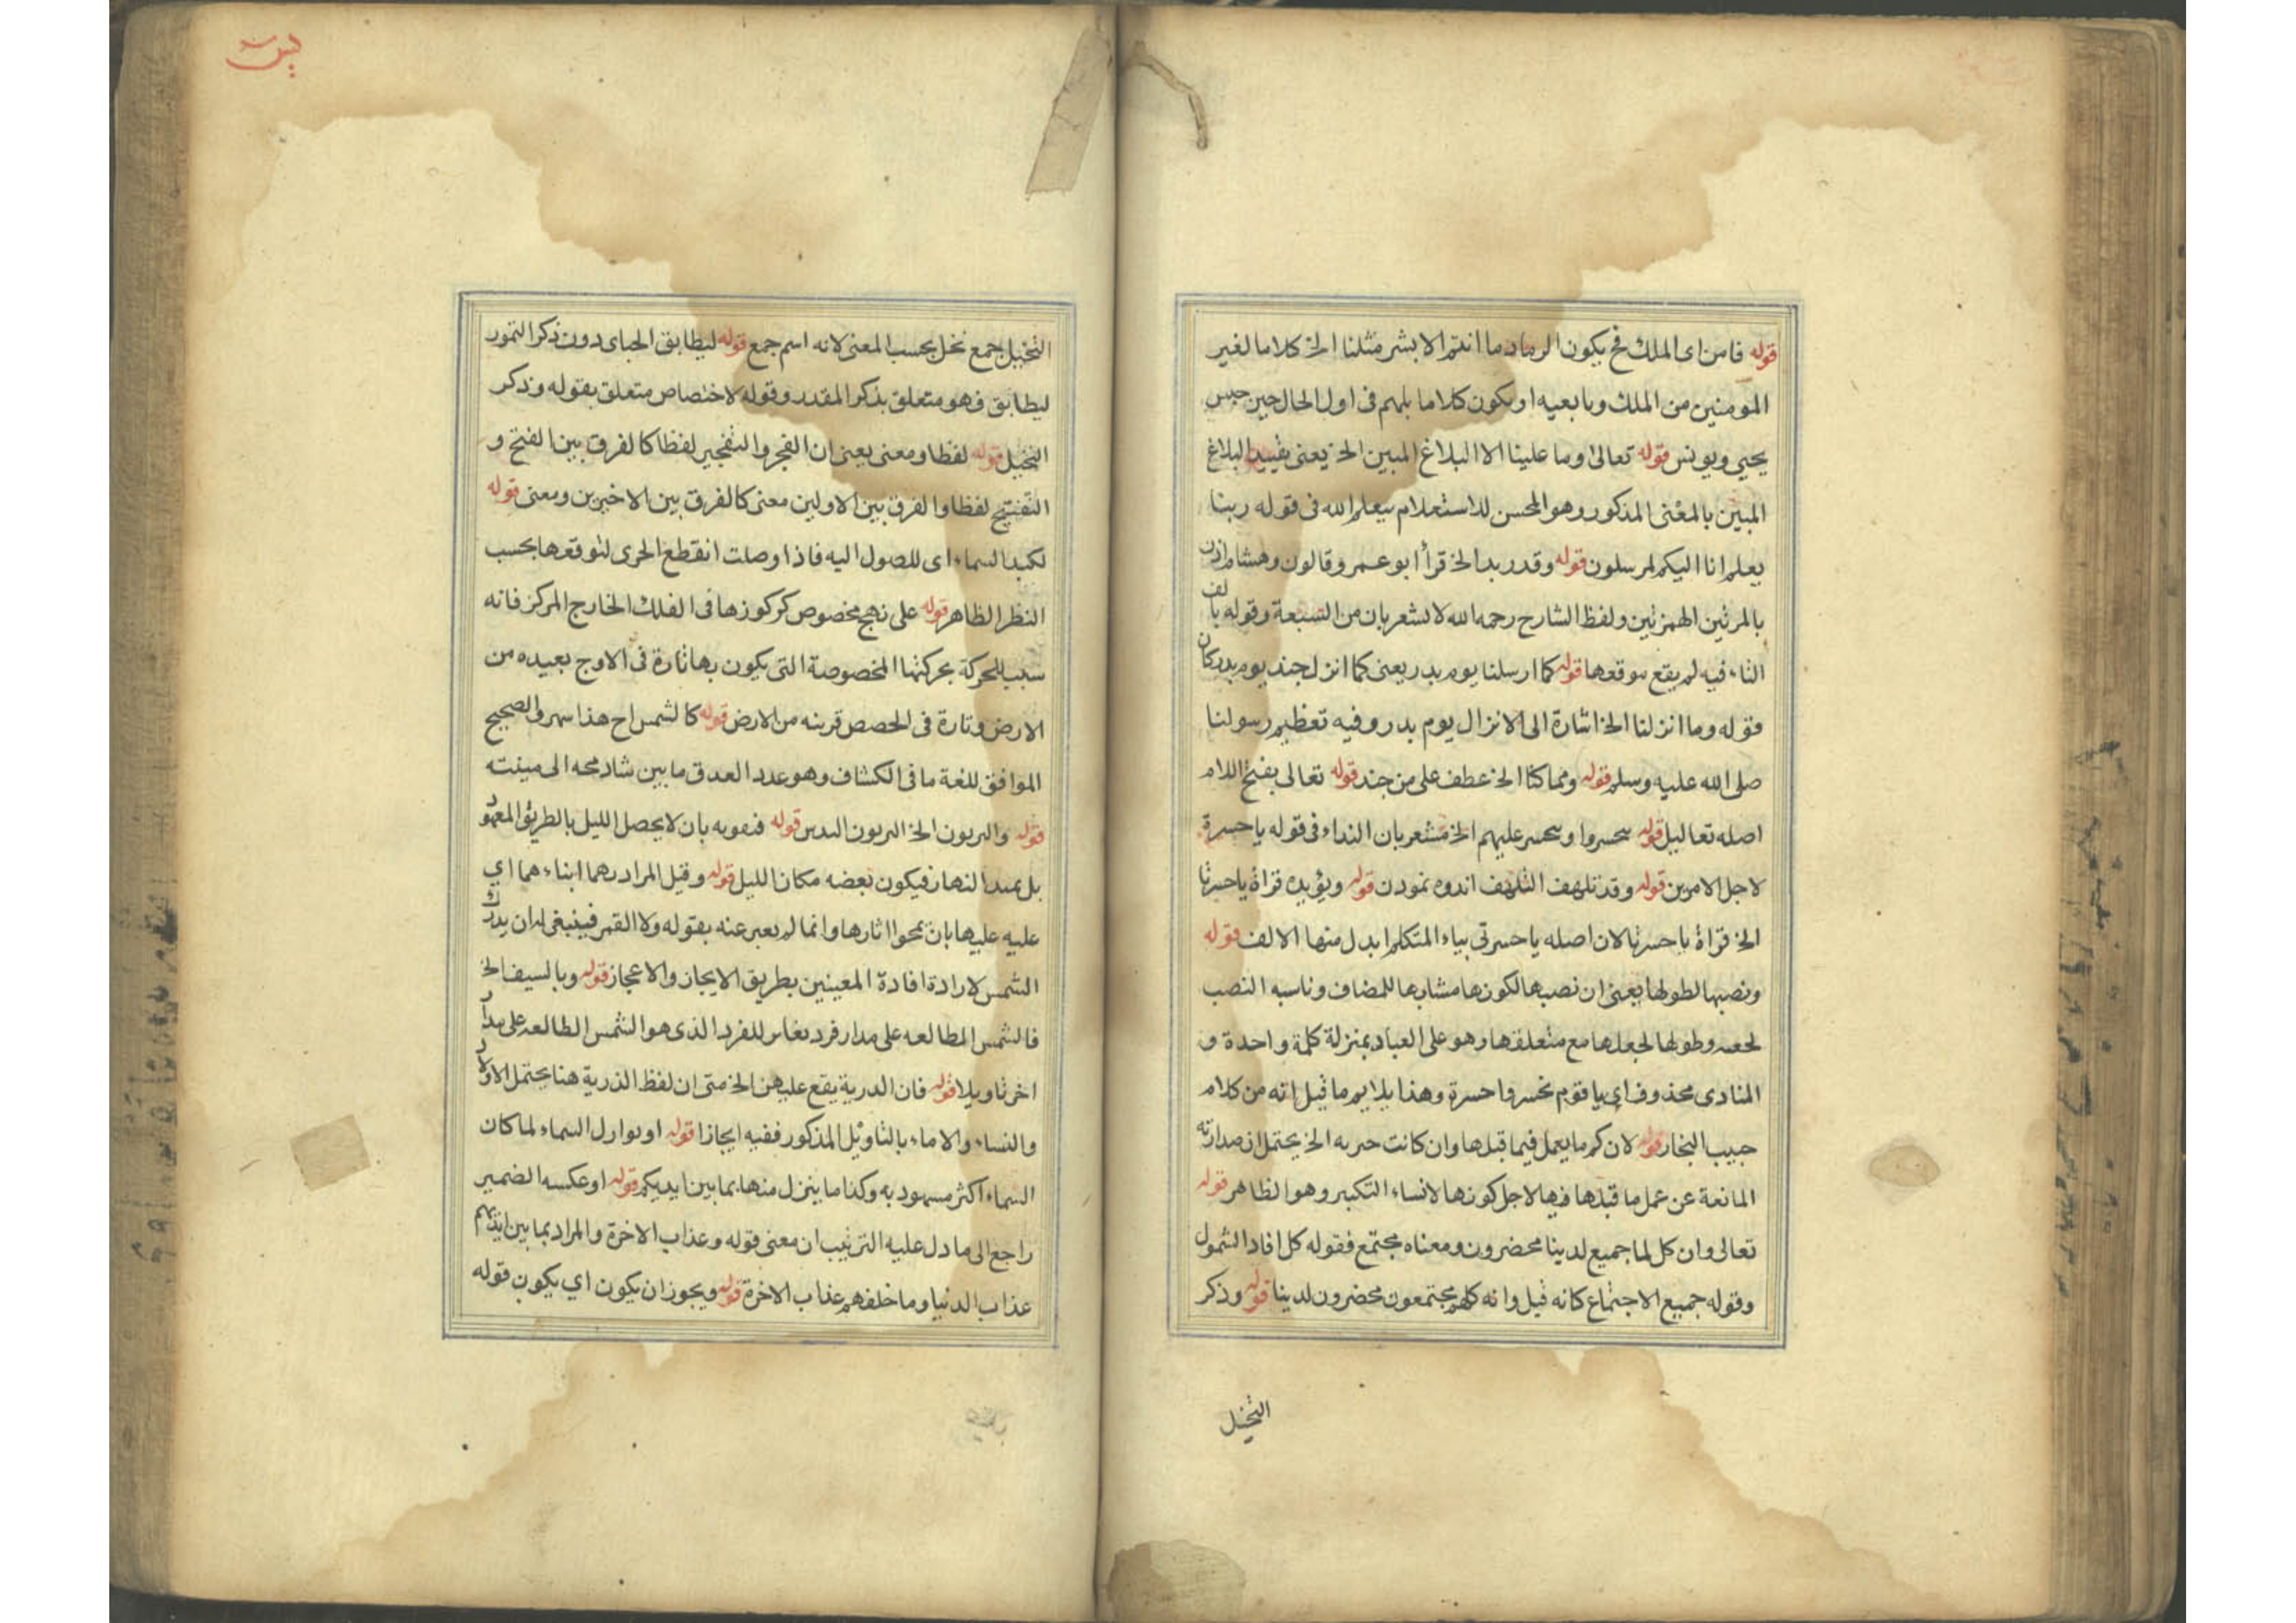 قوله فامن اى الملك فح يكون الرماد ما انتم الا بشر مثلنا الخ كلاما لغير
المومنين من الملك وتابعيه او يكون كلاما بلهم فى اول الحال حين حبس
يحيى ويونس قوله تعالى وما علينا الا البلاغ المبين الخ يعنى تقييد البلاغ
المبين بالمعنى المذكور وهو المحسن للاستعلام بيعلم الله فى قوله ربنا
يعلم انا اليكم لمرسلون قوله وقدر بدا الخ قرأ ابو عمرو قالون وهشام
الهمزتين ولفظ الشارح رحمه الله لا يشعر بان من السبعة وقوله بالف
الثاء فيه لم يقع موقعها قوله كما ارسلنا يوم بدر يعنى كما انزل جند يوم بدر كان
قوله وما انزلنا الخ اشارة الى الانزال يوم بدر وفيه تعظيم رسولنا
صلى الله عليه وسلم قوله ومما كنا الخ عطف على من جند قوله تعالى بفتح اللام
اصله تعاليل قوله سحسروا وسحسر عليهم الخ مشعر بان النداء فى قوله ياحسرة
لاجل الامرين قوله وقد تلهف التلهف اندوه نمودن قوله ويؤيده قراة ياحسرتا
الخ قراة ياحسرتا لان اصله ياحسرتى بياء المتكلم ابدل منها الالف قوله
ونصبها لطولها يعنى ان نصبها لكونها مشابها للمضاف وناسبه النصب
وطولها لجعلها مع متعلقها وهو على العباد بمنزلة كلمة واحدة و
المنادى محذوف اى يا قوم تحسروا حسرة وهذا يلايم ما قيل انه من كلام
حبيب النجار قوله لان كم ما يعمل فيما قبلها وان كانت خبريه الخ يحتمل ان صدارته
المانعة عن عمل ما قبلها فيها لاجل كونها لانساء التكبير وهو الظاهر قوله
تعالى وان كل لما جميع لدينا محضرون ومعناه مجتمع فقوله كل افاد الشمول
وقوله جميع الاجتماع كانه قيل وانه كلهم مجتمعون محضرون لدينا قوله وذكر
النخيل
يس
النخيل جمع نخل بحسب المعنى لانه اسم جمع قوله ليطابق الحباى دون ذكر التمور
ليطابق فهو متعلق بذكر المقدر وقوله لاختصاص متعلق بقوله وذكر
النخيل قوله لفظا ومعنى يعنى ان الفجر والتفجير لفظا كالفرق بين الفتح و
التفتيح لفظا والفرق بين الاولين معنى كالفرق بين الاخيرين ومعنى قوله
لكبد السماء اى للوصول اليه فاذا وصلت انقطع الجرى لتوقعها بحسب
النظر الظاهر قوله على نهج مخصوص كركوزها فى الفلك الخارج المركز فانه
سبب للحركة بحركتها المخصوصة التى يكون بها تارة فى الاوج بعيده من
الارض وتارة فى الحصص قرينه من الارض قوله كالشمراح هذا سهو والصحيح
الموافق للغة ما فى الكشاف وهو عدد العدق ما بين شاد محه الى مينته
قوله والبربون الخ البربون قوله فنفوبه بان لا يحصل الليل بالطريق المعهود
بل يمتد النهار فيكون بعضه مكان الليل قوله وقيل المراد بهما ابناءهما اي
عليه عليها بان تمحوا اثارها وانما لم يعبر عنه بقوله ولا القمر فينبغى له ان يدرك
الشمس لارادة افادة المعينين بطريق الايجاز والاعجاز قوله وبالسيف الخ
فالشمس المطالعه على مدار فرد بغاير للفرد الذى هو الشمس الطالعه على مدار
اخر تاويلا قوله فان الدرية يقع عليهن الخ متى ان لفظ الذرية هنا يحتمل الاولاد
والنساء والاماء بالتاويل المذكور ففيه ايجازا قوله او بوارل السماء لما كان
السماء اكثر مسهود به وكذا ما ينزل منها بما بين ايديكم قوله او عكسه الضمير
راجع الى ما دل عليه الترتيب ان معنى قوله وعذاب الاخرة والمراد بما بين ايديهم
عذاب الدنيا وما خلفهم عذاب الاخرة قوله ويجوز ان يكون اي يكون قوله